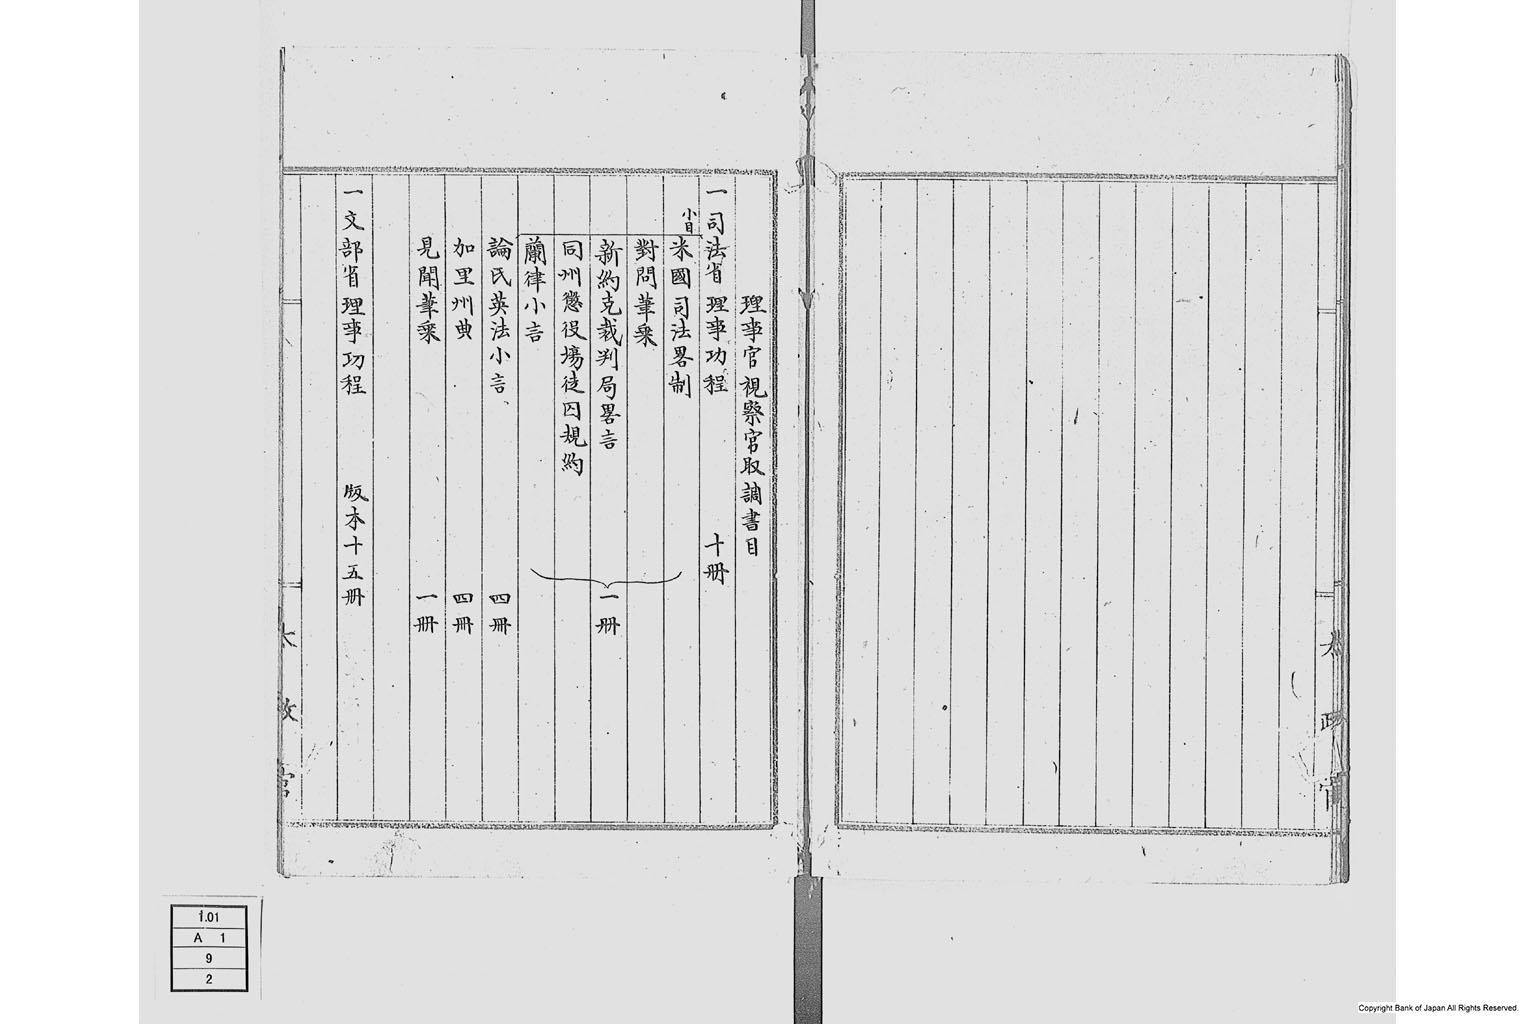 太政官
理事官視察官取調書目
一司法省理事功程 十冊
小目
米國司法畧制
對問筆乘
新約克裁判局畧言 一冊
同州懲役場徒囚規約
蘭律小言
論氏英法小言 四冊
加里州典 四冊
見聞筆乘 一冊
一文部省理事功程 版本十五冊
太政官
1.01
A 1
9
2
Copyright Bank of Japan All Rights Reserved.